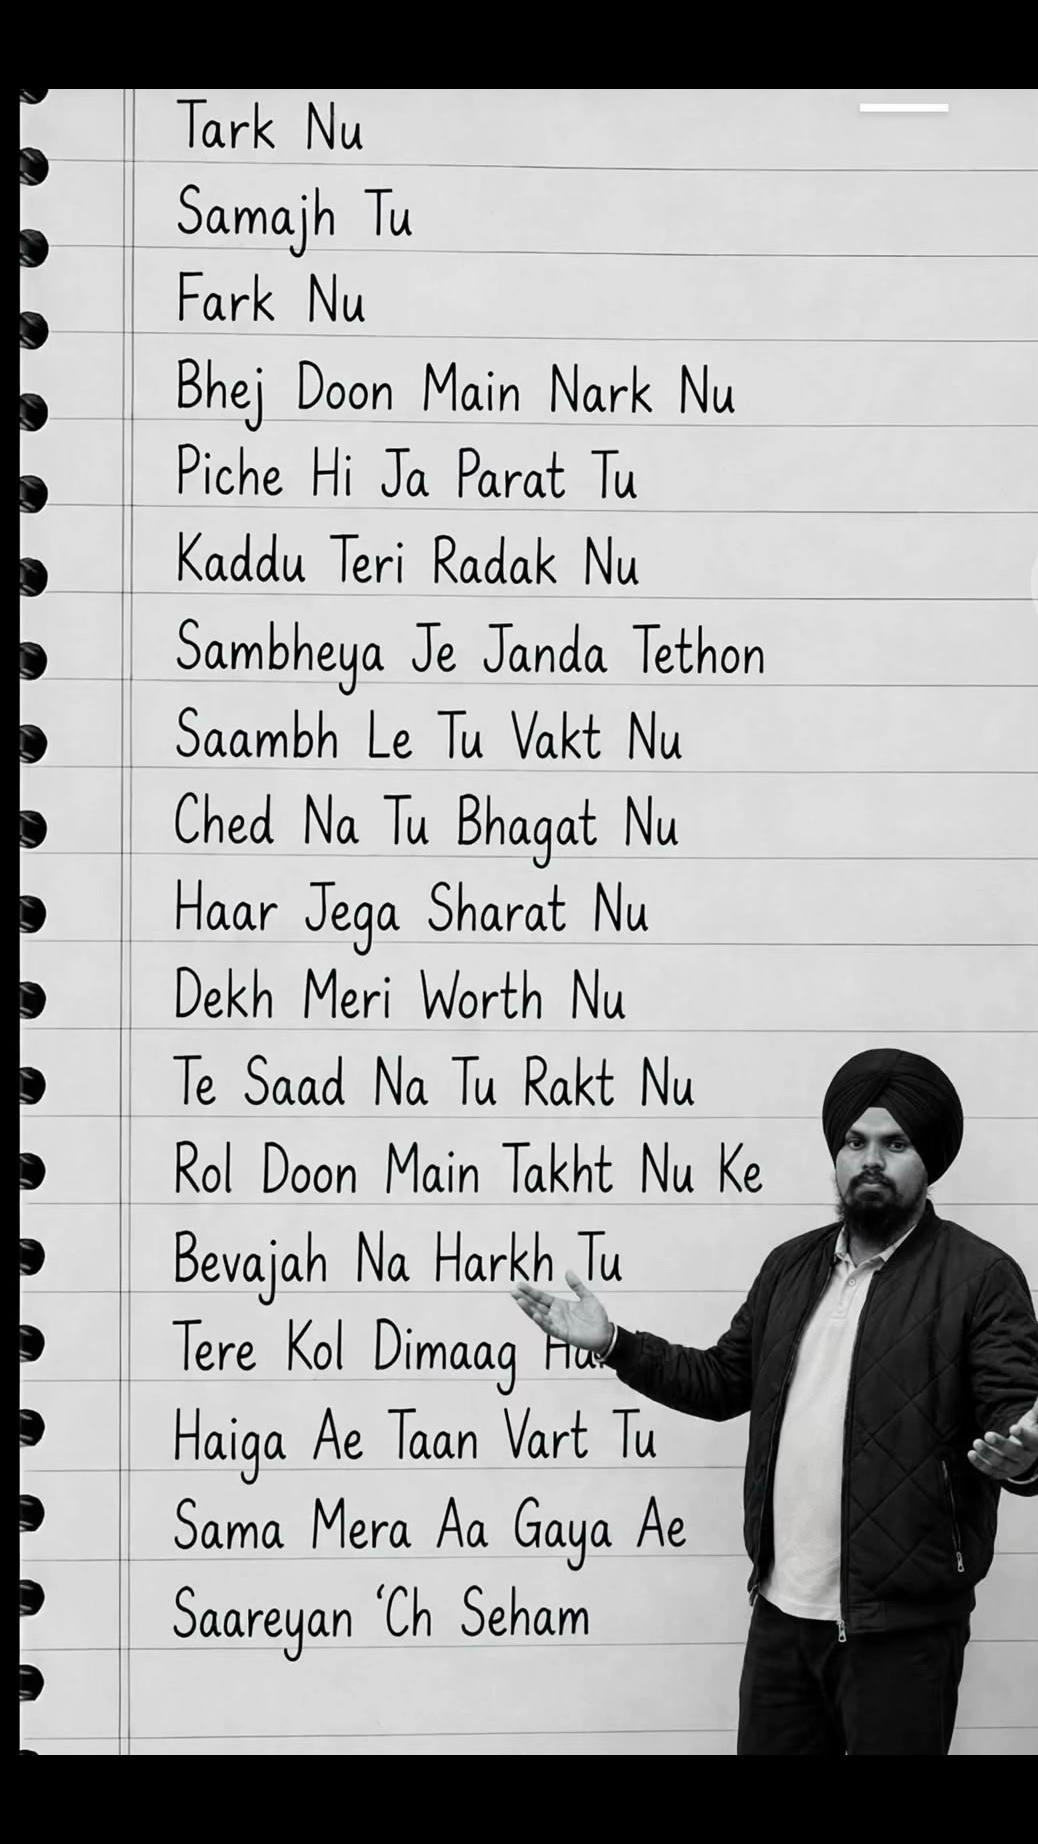 Tark Nu
Samajh Tu
Fark Nu
Bhej Doon Main Nark Nu
Piche Hi Ja Parat Tu
Kaddu Teri Radak Nu
Sambheya Je Janda Tethon
Saambh Le Tu Vakt Nu
Ched Na Tu Bhagat Nu
Haar Jega Sharat Nu
Dekh Meri Worth Nu
Te Saad Na Tu Rakt Nu
Rol Doon Main Takht Nu Ke
Bevajah Na Harkh Tu
Tere Kol Dimaag
Haiga Ae Taan Vart Tu
Sama Mera Aa Gaya Ae
Saareyan ‘Ch Seham